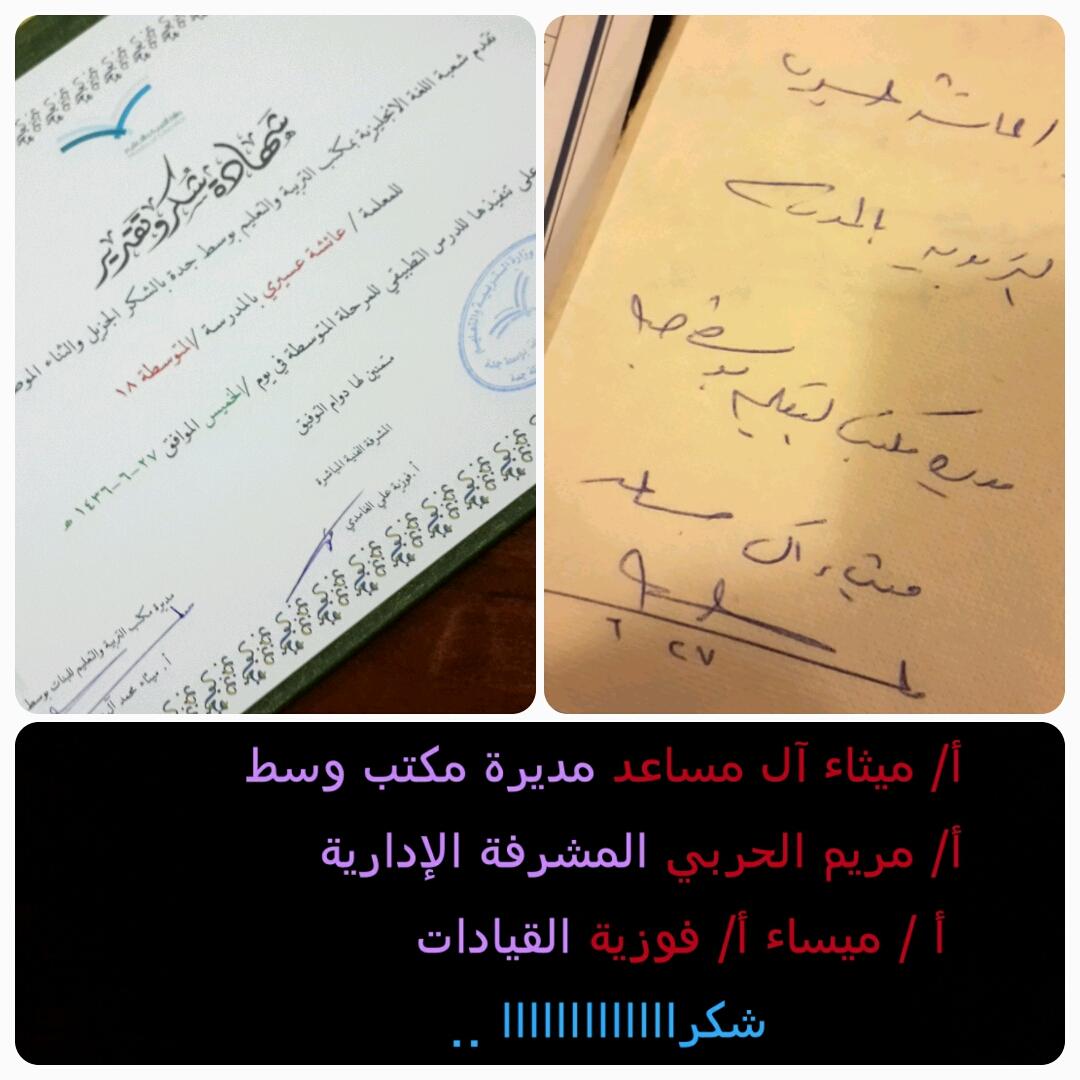 شهادة شكر وتقدير
تقدم شعبة اللغة الانجليزية بمكتب التربية والتعليم بوسط جدة بالشكر الجزيل والثناء
للمعلمة / عائشة عسيري بالمدرسة /المتوسطة ١٨
على تنفيذها للدرس التطبيقي للمرحلة المتوسطة في يوم /الخميس الموافق ٢٧-٦-١٤٣٦ هـ
متمنين لها دوام التوفيق
المشرفة الفنية المباشرة
أ.فوزية علي الغامدي
مديرة مكتب التربية والتعليم للبنات بوسط
أ. ميثاء محمد آل
مديرة مكتب التعليم بوسط جدة
ميثاء آل مساعد
٢٧ ٦
أ/ ميثاء آل مساعد مديرة مكتب وسط
أ/ مريم الحربي المشرفة الإدارية
أ / ميساء أ/ فوزية القيادات
شكراااااااااااااا ..